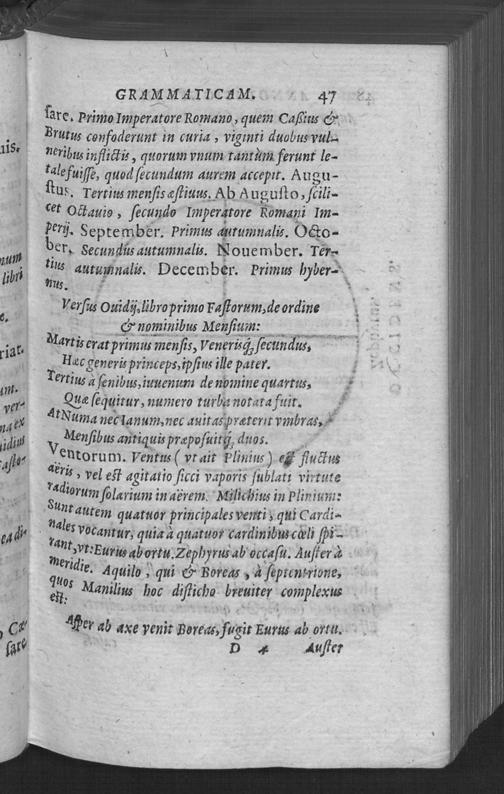 GRAMMATICAM. 47
sare. Primo Imperatore Romano, quem Caßius &
Brutus confoderunt in curia, viginti duobus vul-
neribus inflictis, quorum vnum tantùm ferunt le-
tale fuisse, quod secundum aurem accepit. Augu-
stus. Tertius mensis æstiuus. Ab Augusto, scili-
cet Octauio, secundo Imperatore Romani Im-
perij. September. Primus autumnalis. Octo-
ber. Secundus autumnalis. Nouember. Ter-
tius autumnalis. December. Primus hyber-
nus.
Versus Ouidij, libro primo Fastorum, de ordine
& nominibus Mensium:
Martis erat primus mensis, Venerisq́; secundus,
Hæc generis princeps, ipsius ille pater.
Tertius à senibus, iuuenum de nomine quartus,
Quæ sequitur, numero turba notata fuit.
At Numa nec Ianum, nec auitas præterit vmbras,
Mensibus antiquis præposuitq́; duos.
Ventorum. Ventus (vt ait Plinius) est fluctus
aëris, vel est agitatio sicci vaporis sublati virtute
radiorum solarium in aërem. Milichius in Plinium:
Sunt autem quatuor principales venti, qui Cardi-
nales vocantur, quia à quatuor cardinibus cœli spi-
rant, vt: Eurus ab ortu. Zephyrus ab occasu. Auster à
meridie. Aquilo, qui & Boreas, à septentrione,
quos Manilius hoc disticho breuiter complexus
est:
Asper ab axe venit Boreas, fugit Eurus ab ortu.
D * Auster
uis.
num
libri
e.
riat.
um.
ver-
na ex
uidius
asto-
ea di-
o Cæ-
sare